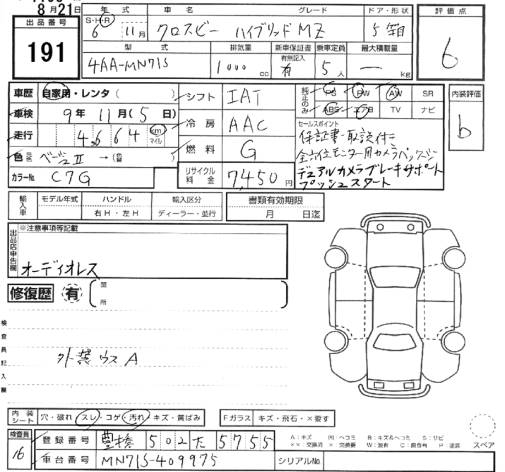 8月21日
出品番号
191
年式 車名 グレード ドア・形状
S・H・R 6年 11月 クロスビー ハイブリッドMZ 5
型式 排気量 新車保証書 乗車定員 最大積載量
有無記入
4AA-MN71S 1000cc 有 5人 kg
評価点
6
車歴 自家用・レンタ( )
車検 9年11月(5日)
走行 4664 km マイル
色 ベージュⅡ→( )
カラーNo. C7G
シフト IAT
冷房 AAC
燃料 G
リサイクル料金 7,450円
純正のみ PS PW AW SR
ABS TV ナビ
セールスポイント
保証書・取説付
デュアルカメラブレーキサポート
プッシュスタート
内装評価
b
輸入車 モデル年式 ハンドル 輸入区分 書類有効期限
右H・左H ディーラー・並行 月 日迄
出品店申告欄
※注意事項等記載
オーディオレス
修復歴 有 箇所
検査員記入欄
外装ウスA
内装シート 穴・破れ スレ・コゲ 汚れ・キズ・黄ばみ Fガラス キズ・飛石・×要す
検査員
16
登録番号 豊橋 502 た 5755
車台番号 MN71S-409975 シリアルNo.
A:キズ B:キズ&ヘコミ S:サビ
スペア